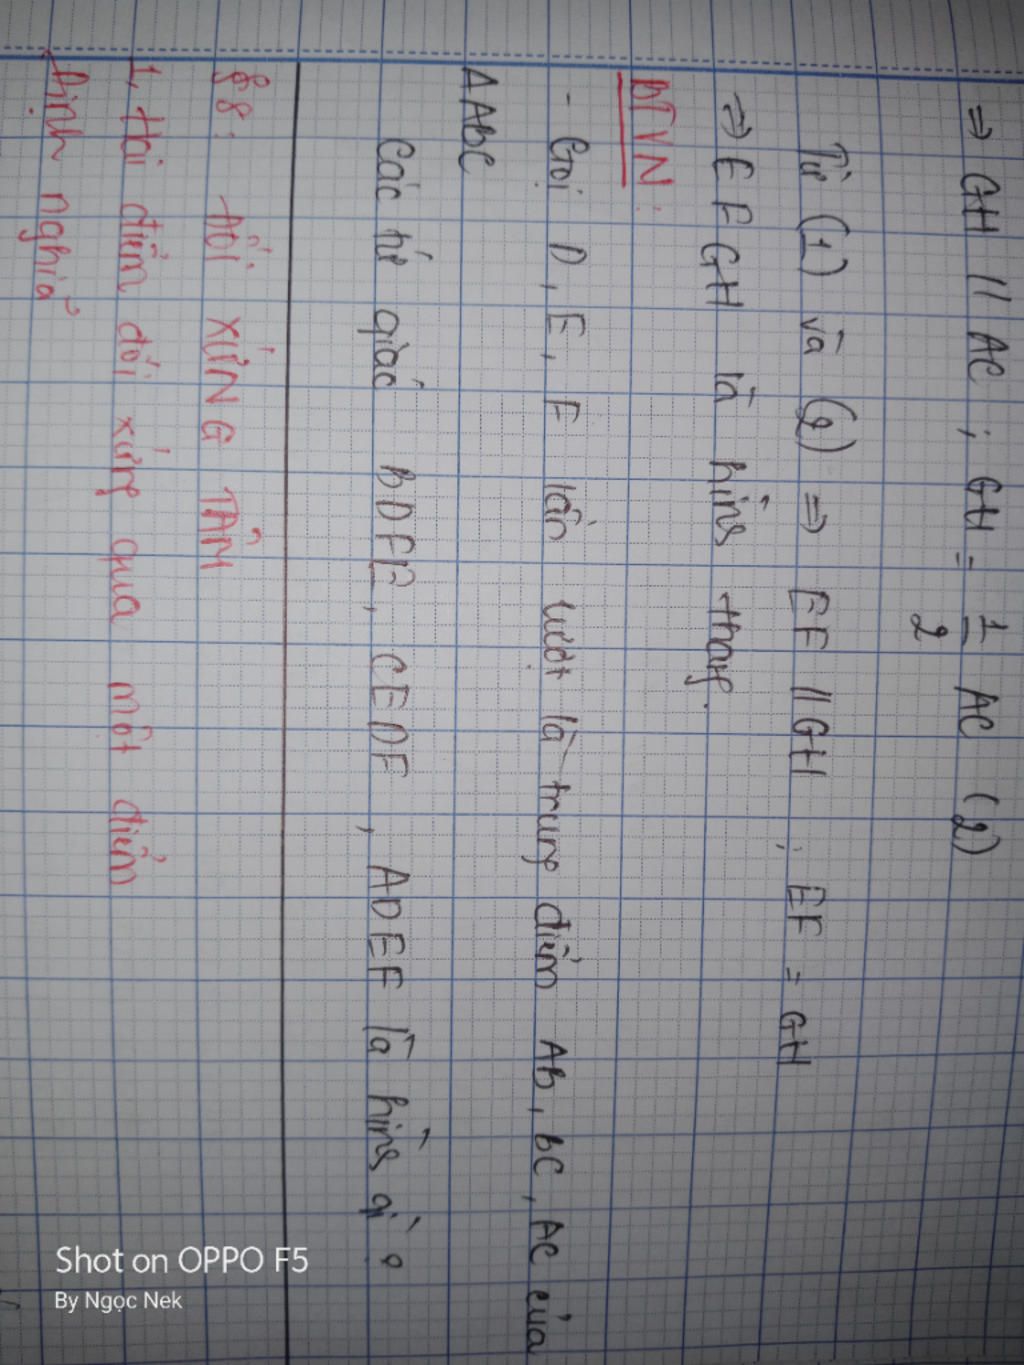 => GH // AC ; GH = 1/2 AC (2)
Từ (1) và (2) => EF // GH ; EF = GH
=> EFGH là hình thang.
BTVN:
- Gọi D, E, F lần lượt là trung điểm AB, BC, AC của
ΔABC
Các tứ giác BDFE, CEDF, ADEF là hình gì?
§8: ĐỐI XỨNG TÂM
1, Hai điểm đối xứng qua một điểm
Định nghĩa
Shot on OPPO F5
By Ngọc Nek